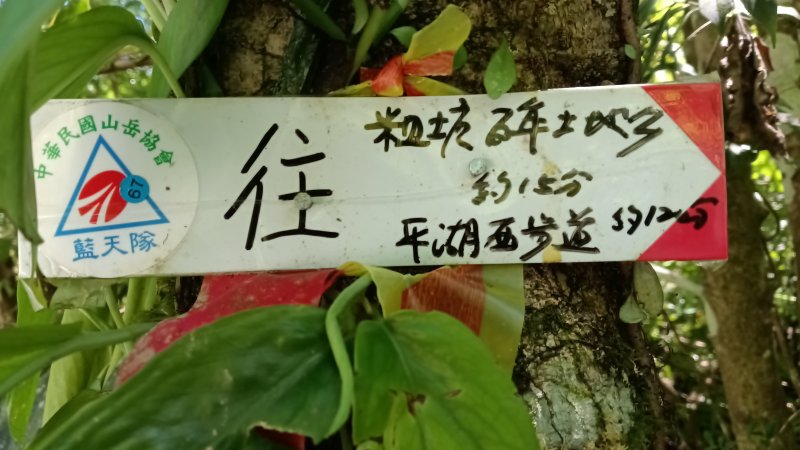 中華民國山岳協會
67
藍天隊
往
粗坑百年土地公
約15分
平湖西步道 約12分